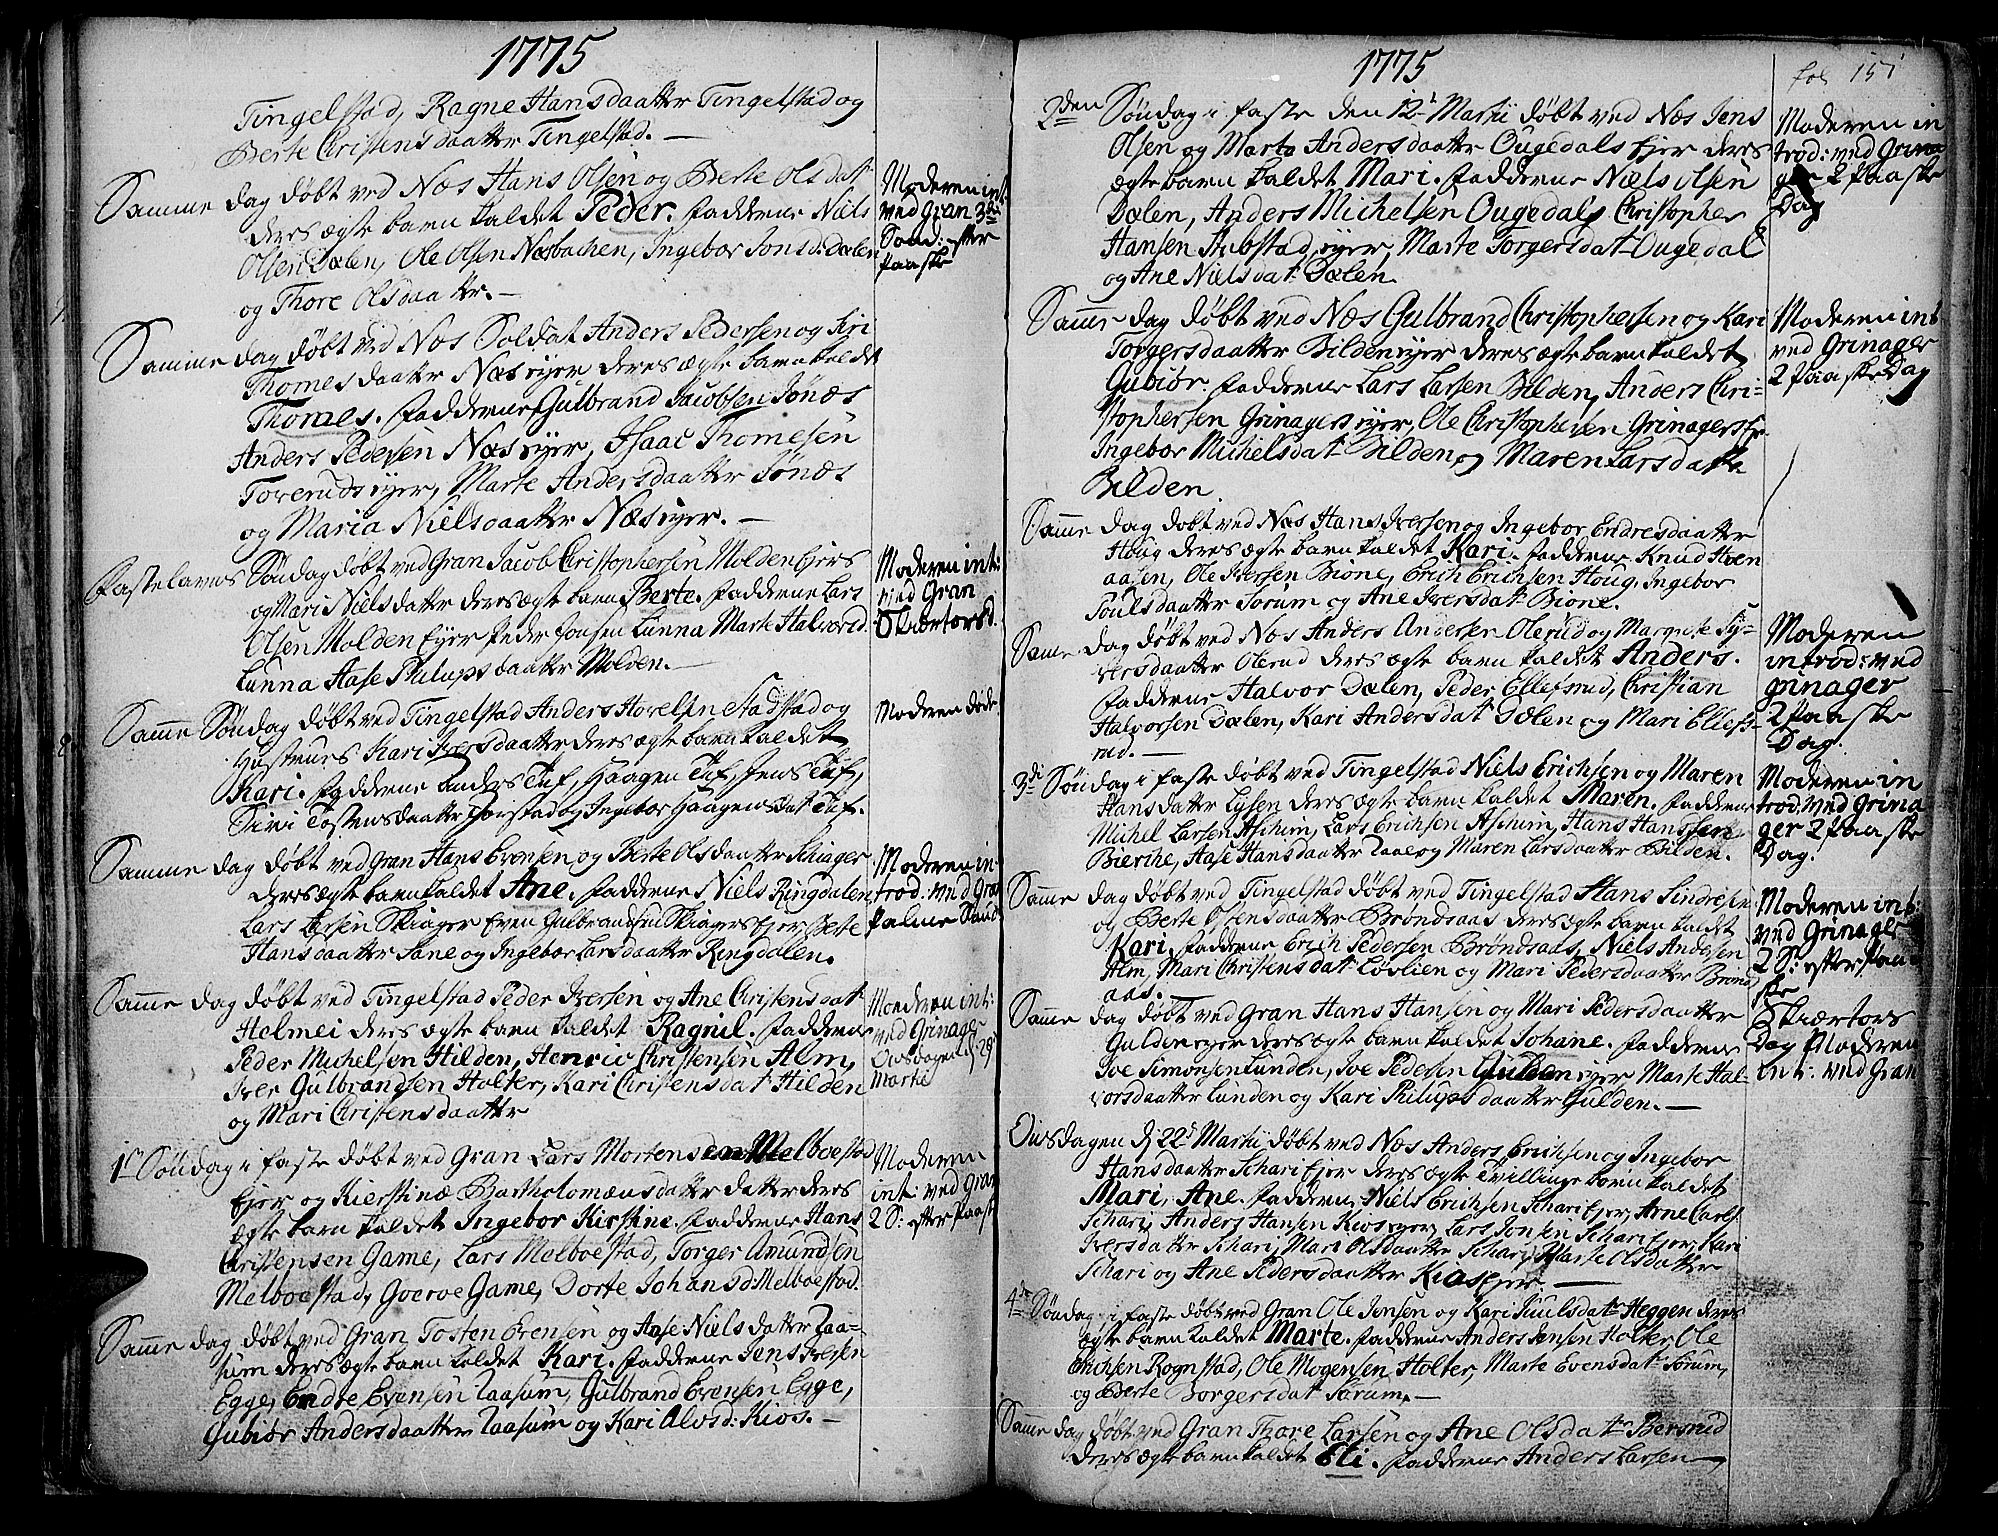 1775
Tingelstad, Ragne Hansdaatter Tingelstad og
Berte Christensdaatter Tingelstad. —
Samme dag døbt ved Næs Hans Olsen og Berte Olsdatt
deres ægte barn kaldet Peder. Fadderne Niels
Olsen Dælen, Ole Olsen Næsbachen, Ingebor Jonsd: Dælen
og Thore Olsdaatter. —
Moderen int:
ved Gran 3die
Sønd: efter
Paaske
Samme dag døbt ved Næs Soldat Anders Pedersen og Siri
Thomesdaatter Næs eyer deres ægte barn kaldet
Thomes. Fadderne Gulbrand Jacobsen Jønæs
Anders Pedersen Næs eyer, Isaac Thomesen
Toverud eyer, Marte Andersdaatter Jønæs
og Maria Nielsdaatter Næs eyer. —
Fastelavns Søndag døbt ved Gran Jacob Christophersen Molden Ejers
og Mari Nielsdatter deres ægte barn Berte. Fadderne Lars
Olsen Molden Eyer Peder Jonsen Lunna Marte Halvorsd.
Lunna Aase Philupsdaatter Molden. —
Moderen int:
ved Gran
Skiærtorsd.
Samme Søndag døbt ved Tingelstad Anders Hovelsen Stadstad og
Hustrues Kari Iversdaatter deres ægte barn kaldet
Kari. Fadderne Anders Tuf, Haagen Tuf, Jens Tuf,
Sivi Tostensdaatter Horstad og Ingebor Haagensdat Tuf.
Moderen døde.
Samme dag døbt ved Gran Hans Evensen og Berte Olsdaatter Skiager
deres ægte barn kaldet Ane. Fadderne Niels Ringdalen
Lars Larsen Skiager Even Gulbrandsen Skiagers Ejer Berte
Hansdaatter Sane og Ingebor Larsdaatter Ringdalen.
Moderen in-
trod: ved Gran
Palme Sønd
Samme dag døbt ved Tingelstad Peder Iversen og Ane Christensdat
Helmei deres ægte barn kaldet Ragnil. Fadderne
Peder Michelsen Hilden, Henric Christensen Alm,
Iver Gulbrandsen Holter, Kari Christensdat Hilden
og Mari Christensdaatter
Moederen int:
ved Grinager
Onsdagen d. 29
Martii
1ste Søndag i Faste døbt ved Gran Lars Mortensen Melboestad
Ejer og Kierstinæ Bartholomæusdatter datter deres
ægte barn kaldet Ingebor Kirstine. Fadderne Hans
Christensen Game, Lars Melboestad, Torger Amundsen
Melboestad, Goeroe Game, Dorte Johansd: Melboestad.
Moderen
int: ved Gran
2 S: efter Paask
Samme dag døbt ved Gran Tosten Evensen og Aase Nielsdatter Zaa-
sum deres ægte barn kaldet Kari. Fadderne Jens Iversen
Egge, Endre Evensen Zaasum, Gulbrand Evensen Egge,
Gubiør Andersdaatter Zaasum og Kari Alvsd: Kios. —
1775
fol 151
2den Søndag i Faste den 12te Martii døbt ved Næs Jens
Olsen og Marte Andersdaatter Ougedals Ejer deres
ægte barn kaldet Mari. Fadderne Niels Olsen
Dælen, Anders Michelsen Ougedals Christopher
Hansen Hubstad eyer, Marte Torgersdat Ougedal
og Ane Nielsdat Dælen.
Moderen in
trod: ved Grina
ger 2 Paaske
Dag
Samme dag døbt ved Næs Gulbrand Christophersen og Kari
Torgersdaatter Bilden eyer deres ægte barn kaldet
Gubiør. Fadderne Lars Larsen Bilden, Anders Chri-
stophersen Grinagers eyer, Ole Christophersen Grinagers Ejer
Ingebor Michelsdat Bilden og Maren Larsdatte
Bilden.
Moderen int
ved Grinager
2 Paaske Dag
Samme dag døbt ved Næs Hans Iversen og Ingebor Endresdaatter
Houg deres ægte barn kaldet Kari. Fadderne Knud Hven
aasen, Ole Iversen Bione, Erich Erichsen Houg, Ingebor
Poulsdaatter Sørum og Ane Iversdat Bione.
Same dag døbt ved Næs Anders Andersen Olerud og Margrete Sy-
versdaatter Olerud deres ægte barn kaldet Anders.
Fadderne Halvor Dælen, Peder Ellefsrud, Christian
Halvorsen Dælen, Kari Andersdat Dælen og Mari Ellefs-
rud. —
Moderen
introd: ved
Grinager
2 Paaske
Dag.
3die Søndag i Faste døbt ved Tingelstad Niels Erichsen og Maren
Hansdatter Lysen deres ægte barn kaldet Maren. Faddere
Michel Larsen Aschim, Lars Erichsen Aschim, Hans Hanssen
Bierche, Aase Hansdaatter Zaal og Maren Larsdaatter Bilden.
Moderen in
trod: ved Grina
ger 2 Paaske
Dag.
Samme dag døbt ved Tingelstad døbt ved Tingelstad Hans Sindresen
og Berte Olsensdaatter Brøndsaas deres ægte barn kaldet
Kari. Fadderne Erich Pedersen Brøndsaas, Niels Andersen
Alm, Mari Christensdat Løvlien og Mari Pedersdaatter Brønd
aas. —
Moderen int:
ved Grinager
2 S: efter Paa-
ske
Samme dag døbt ved Gran Hans Hansen og Mari Pedersdaatter
Gulden eyer deres ægte barn kaldet Johane. Fadderne
Joe Simonsen Lunden, Joe Pedersen Gulden eyer Marte Hal-
vorsdaatter Lunden og Kari Philupsdaatter Gulden. —
Skiærtors
Dag Moderen
int: ved Gran
Onsdagen d: 22de Martii døbt ved Næs Anders Erichsen og Ingebor
Hansdaatter Schari Ejer deres ægte Tvillinge børn kaldet
Mari, Ane. Fadderne Niels Erichsen Schari Ejer, Arne Carls.
Schari, Anders Hansen Kios eyer, Lars Jonsen Schari Ejer, Kari
Iversdatter Schari, Mari Olsdaatter Schari, Marte Olsdatter
Schari og Ane Pedersdaatter Kios Ejer —
4de Søndag i Faste døbt ved Gran Ole Jensen og Kari Juulsdat Heggen deres
ægte barn kaldet Marte. Fadderne Anders Jensen Holter Ole
Erichsen Rognstad, Ole Mogensen Holter, Marte Evensdat Sørum,
og Berte Borgersdat Sørum. —
Samme dag døbt ved Gran Thore Larsen og Ane Olsdatr Bersrud
deres ægte barn kaldet Eli. Fadderne Anders Larsen